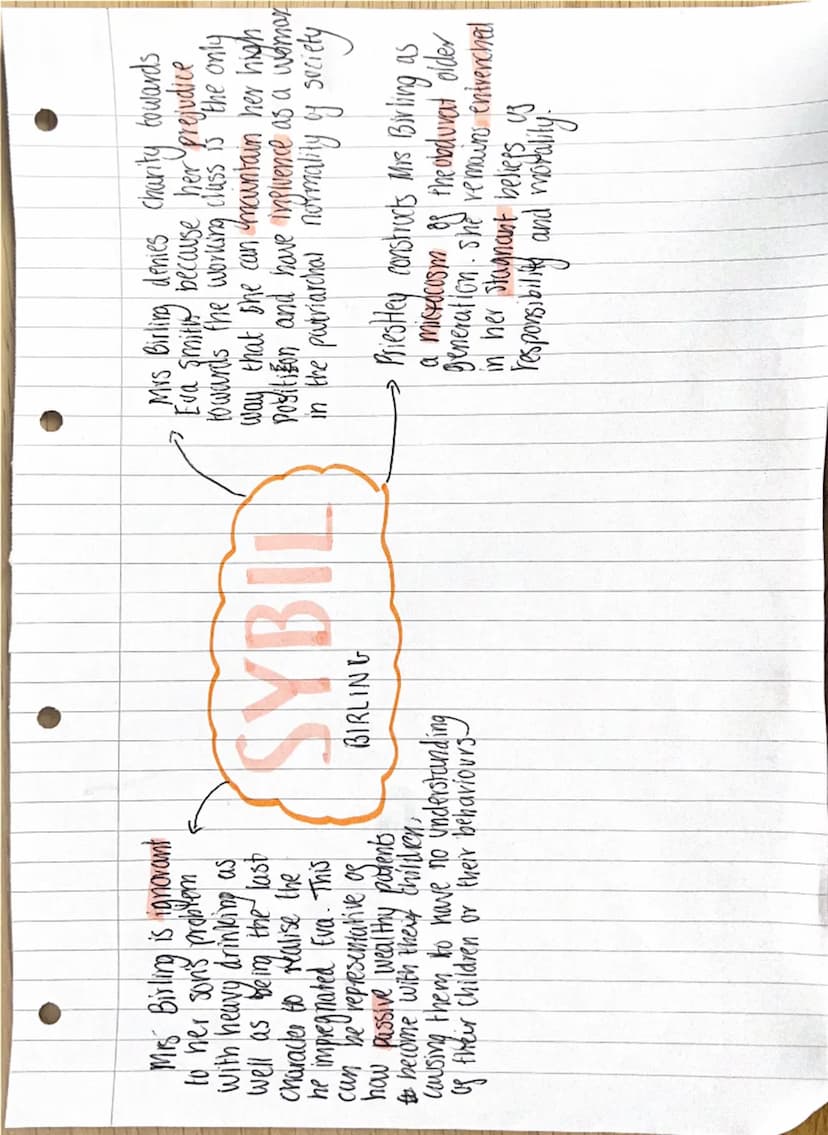 SYBIL
BIRLING
Mrs Birling is ignorant
to her son's problem
with heavy drinking as
well as being the last
character to realise the
he impregnated Eva. This
can be representative of
how passive wealthy parents
become with their children,
causing them to have no understanding
of their children or their behaviours
Mrs Birling denies charity towards
Eva Smith because her prejudice
towards the working class is the only
way that she can maintain her high
position and have influence as a woman
in the patriarchal normality of society
Priestley constructs Mrs Birling as
a microcosm of the obdurat older
generation. She remains entrenched
in her stagnant beliefs of
responsibility and morality.